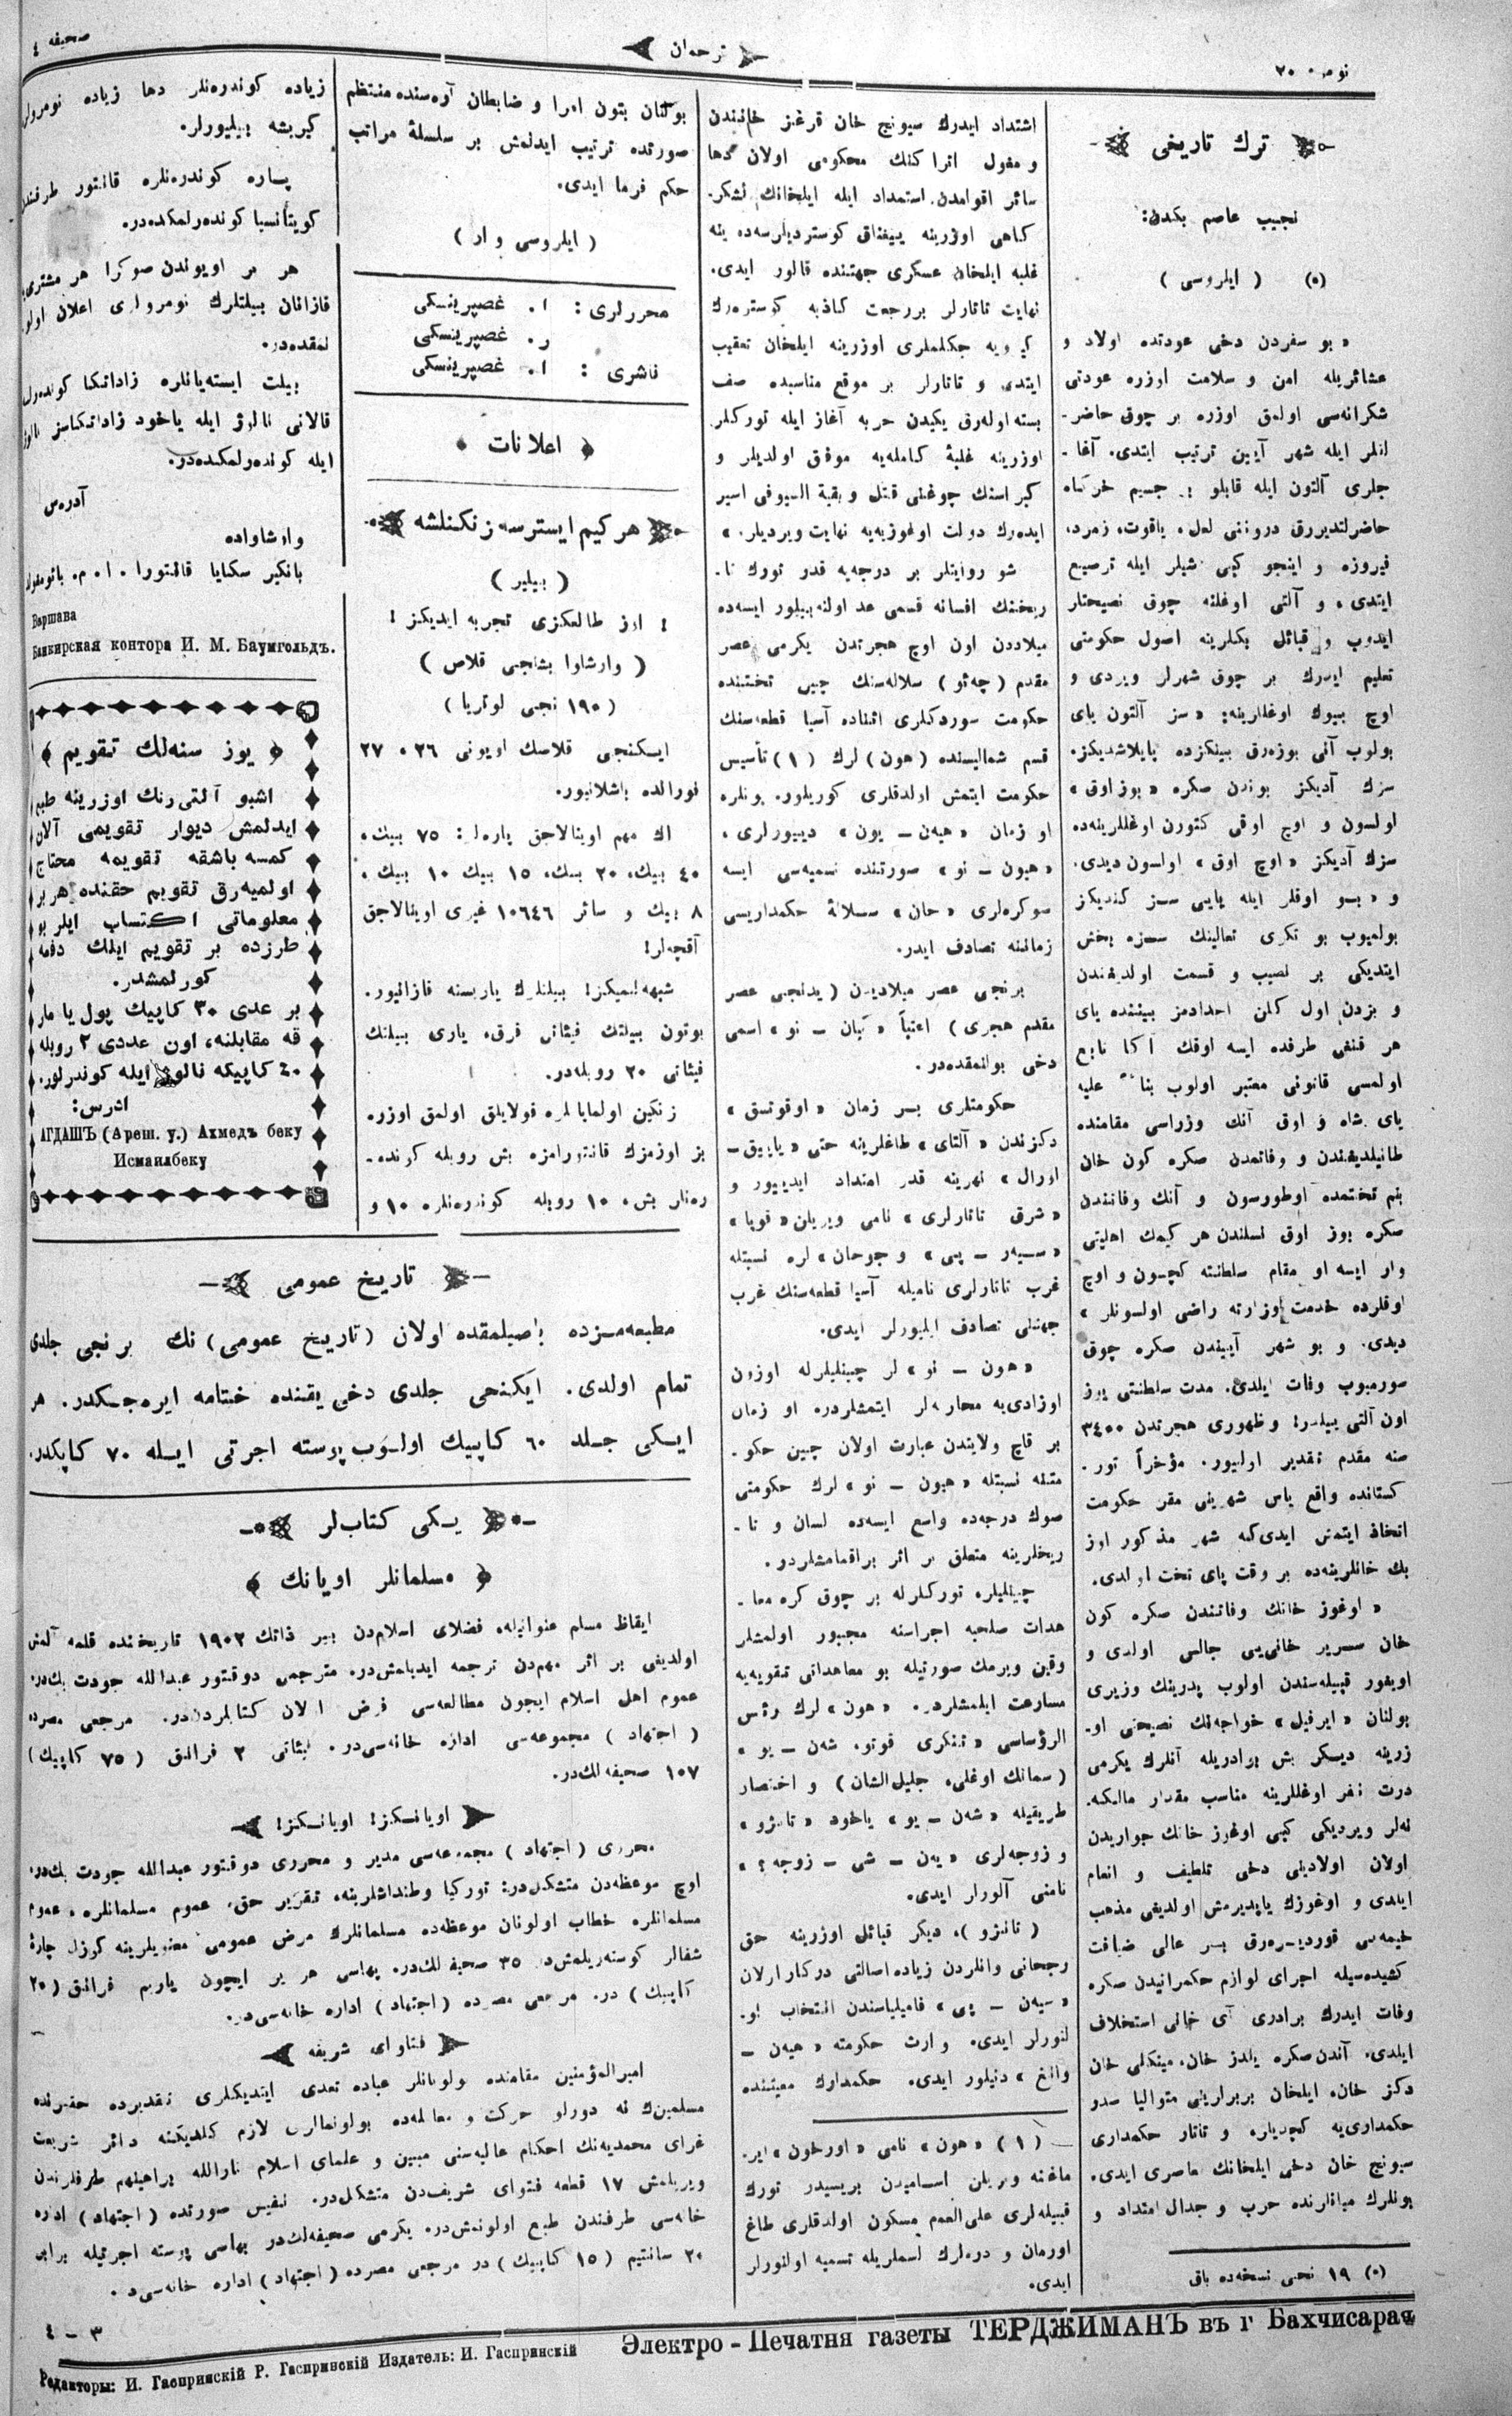 نومرو ۲۰
ترجمان
صحیفه ٤
ترك تاریخی
نجیب عاصم بکدن:
(٥) ( ایلروسی )
« بو سفردن دخی عودتده اولاد و
عشائریله امن و سلامت اوزره عودتی
شکرانه‌سی اولمق اوزره بر چوق حاضر-
لنلر ایله شهر آیین ترتیب ایتدی. آغا-
جلری آلتون ایله قابلو بر جسیم خرگاه
حاضرلتدیررق دروننی لعل، یاقوت، زمرد،
فیروزه و اینجو کبی شیلر ایله ترصیع
ایتدی، و آلتی اوغلنه چوق نصیحتلر
ایدوب و قبائل بکلرینه اصول حکومتی
تعلیم ایدرك بر چوق شهرلر ویردی و
اوچ بیوك اوغللرینه: « سز آلتون یای
بولوب آنی بوزه‌رق بینکزده پایلاشدیکز.
سزك آدیکز بوندن صکره « بوز اوق »
اولسون و اوچ اوقی کتورن اوغللرینه‌ده
سزك آدیکز « اوچ اوق » اولسون دیدی.
و « بو اوقلر ایله یایی سز کندیکز
بولمیوب بو تکری تعالینك سزه بخش
ایتدیکی بر نصیب و قسمت اولدیغندن
و بزدن اول کلن اجدادمز بیننده یای
هر قنغی طرفده ایسه اوقك آکا تابع
اولمسی قانونی معتبر اولوب بناءً علیه
یای شاه و اوق آنك وزراسی مقامنده
طانیلدیغندن و وفاتمدن صکره کون خان
بنم تختمده اوطورسون و آنك وفاتندن
صکره بوز اوق نسلندن هر کیمك اهلیتی
وار ایسه او مقام سلطنته کچسون و اوچ
اوقلرده خدمت وزارته راضی اولسونلر »
دیدی. و بو شهر آییندن صکره چوق
سورمیوب وفات ایلدی. مدت سلطنتی یوز
اون آلتی ییلدر! و ظهوری هجرتدن ۳٤۰۰
سنه مقدم تقدیر اولنیور. مؤخراً تور-
کستانده واقع یاس شهرینی مقر حکومت
اتخاذ ایتمش ایدی‌که شهر مذکور اوز
بك خانلرینه‌ده بر وقت پای تخت اولدی.
« اوغوز خانك وفاتندن صکره کون
خان سریر خانی‌یی جالس اولدی و
اویغور قبیله‌سندن اولوب پدرینك وزیری
بولنان « ایرقیل » خواجه‌نك نصیحتی او-
زرینه دیکر بش برادریله آنلرك یکرمی
درت نفر اوغللرینه مناسب مقدار مالیکه-
نه‌لر ویردیکی کبی اوغوز خانك جواریدن
اولان اولادینی دخی تلطیف و انعام
ایلدی و اوغوزك یاپدیرمش اولدیغی مذهب
خیمه‌سی قوردیره‌رق بر عالی ضیافت
کشیده‌سیله اجرای لوازم حکمرانیدن صکره
وفات ایدرك برادری آی خانی استخلاف
ایلدی. آندن صکره یلدز خان، مینکلی خان
دکز خان، ایلخان بربرلرینی متوالیا سدو
حکمداری‌یه کچدیلر، و تاتار حکمداری
سیونج خان دخی ایلخانك معاصری ایدی.
بونلرك میانلرنده حرب و جدال امتداد و
(٥) ۱۹ نجی نسخه‌ده باق
اشتداد ایدرك سیونج خان قرغز خانندن
و مغول اتراکنك محکومی اولان دها
سائر اقوامدن استمداد ایله ایلخانك لشکر-
کاهی اوزرینه ییغناق کوستردیلرسه‌ده ینه
غلبه ایلخان عسکری جهتنده قالور ایدی.
نهایت تاتارلر بررجعت کاذبه کوستره‌رك
کیرویه چکلملری اوزرینه ایلخان تعقیب
ایتدی و تاتارلر بر موقع مناسبده صف
بسته اوله‌رق یکیدن حربه آغاز ایله تورکلر
اوزرینه غلبهٔ کامله‌یه موفق اولدیلر و
کبراسنك چوغنی قتل و بقیة السیوفی اسیر
ایده‌رك دولت اوغوزیه‌یه نهایت ویردیلر. »
شو روایتلر بر درجه‌یه قدر تورك تا-
ریخنك افسانه قسمی عد اولنه‌بیلور ایسه‌ده
میلاددن اون اوچ هجرتدن یکرمی عصر
مقدم ( چه‌ئو ) سلاله‌سنك چین تختنده
حکومت سوردکلری اثناده آسیا قطعه‌سنك
قسم شمالیسنده ( هون ) لرك (۱) تأسیس
حکومت ایتمش اولدقلری کوریلور. بونلره
او زمان « هیه‌ن – یون » دییورلری.
« هیون – نو » صورتنده تسمیه‌سی ایسه
سوکره‌لری « خان » سلالهٔ حکمداریسی
زماننه تصادف ایدر.
برنجی عصر میلادیدن ( یدنجی عصر
مقدم هجری ) اعتباً « کیان – نو » اسمی
دخی بولنمقده‌در.
حکومتلری بر زمان « اوقوتسق »
دکزندن « آلتای » طاغلرینه حتی « یاییق –
اورال » نهرینه قدر امتداد ایدییور و
« شرق تاتارلری » نامی ویریلن « قوپا »
« سیه‌ر – پی » و جوجان » لره نسبتله
غرب تاتارلری نامیله آسیا قطعه‌سنك غرب
جهتنی تصادف ایلیورلر ایدی.
« هون – نو » لر چینلیلرله اوزون
اوزادی‌یه محاربه‌لر ایتمشلردر. او زمان
بر قاچ ولایتدن عبارت اولان چین حکو-
متنه نسبتله « هیون – نو » لرك حکومتی
صوك درجه‌ده واسع ایسه‌ده لسان و تا-
ریخلرینه متعلق بر اثر براقمامشلردر.
چینلیلر، تورکلرله بر چوق کره معا-
هدات صلحیه اجراسنه مجبور اولمشلر
وقیز ویرمك صورتیله بو معاهداتی تقویه‌یه
مسارعت ایلمشلردر. « هون » لرك رئیس
الرؤساسی « تنکری قوتو، شه‌ن – یو »
( سمانك اوغلی، جلیل‌الشان ) و اختصار
طریقیله « شه‌ن – یو » یاخود « تانژو »
و زوجه‌لری « یه‌ن – شی – زوجه؟ »
نامنی آلورلر ایدی.
( تانژو )، دیکر قبائل اوزرینه حق
رجحانی وانلردن زیاده اصالتی درکار اولان
« سیه‌ن – پی » فامیلیاسندن انتخاب او-
لنورلر ایدی. وارث حکومته « هیه‌ن –
وانغ » دنیلور ایدی. حکمدارك معیتنده
(۱) « هون » نامی « اورخون » ایر-
ماغنه ویریلن اسامیدن بریسیدر تورك
قبیله‌لری علی‌العموم مسکون اولدقلری طاغ
اورمان و دره‌لرك اسملریله تسمیه اولنورلر
ایدی.
بولنان بتون امرا و ضابطان آره‌سنده منتظم
صورتده ترتیب ایدلمش بر سلسلهٔ مراتب
حکم فرما ایدی.
( ایلروسی وار )
محررلری: ا. غصپرینسکی
ر. غصپرینسکی
ناشری: ا. غصپرینسکی
اعلانات
هرکیم ایسترسه زنکنلشه
( بیلیر )
! اوز طالعکزی تجربه ایدیکز !
( وارشاوا بشنجی قلاص )
( ۱۹۰ نجی لوتریا )
ایکنجی قلاسك اویونی ۲٦ ، ۲۷
فورالده باشلانیور.
اك مهم اوینالاجق پاره‌لر: ۷٥ بیك،
٤۰ بیك، ۲۰ بیك، ۱٥ بیك ۱۰ بیك،
۸ بیك و سائر ۱۰٦٤٦ غیری اوینالاجق
آقچه‌لر!
شبهه ایتمیکز! بیلتلرك یاریسنه قازانیور.
بوتون بیلتك فیئاتی فرق، یاری بیلتك
فیئاتی ۲۰ روبله‌در.
زنکین اولمایانلره قولایلق اولمق اوزره
بز اوزمزك قانتورامزه بش روبله کونده-
ره‌نلر بش، ۱۰ روبله کوندره‌نلره ۱۰ و
زیاده کوندره‌نلر دها زیاده نومرولر
کیریشه بیلیورلر.
پاره کوندره‌نلره قانتور طرفندن
کویتانسیا کونده‌رلمکده‌در.
هر بر اویوندن صوکرا هر مشتری‌یه
قازانان بیلتلرك نومرولری اعلان اولو
نمقده‌در.
بیلت ایسته‌یانلره زاداتکا کونده‌رلب
قالانی نالوژ ایله یاخود زاداتکاسز نالوژ
ایله کونده‌رلمکده‌در.
آدره‌س
وارشاواده
بانکیر سکایا قانتورا . ا . م. باومغولد
Варшава
Банкирская контора И. М. Баумгольдъ.
یوز سنه‌لك تقویم
اشبو آلتی رنك اوزرینه طبع
ایدلمش دیوار تقویمی آلان
کمسه باشقه تقویمه محتاج
اولمیه‌رق تقویم حقنده هر بر
معلوماتی اکتساب ایلر بو
طرزده بر تقویم ایلك دفعه
کورلمشدر.
بر عددی ۳۰ کاپیك پول یا مار
قه مقابلنه، اون عددی ۲ روبله
٤۰ کاپیکه نالوژ ایله کوندرلور.
ادرس:
АГДАШЪ (Ареш. у.) Ахмедъ беку
Исмаилбеку
تاریخ عمومی
مطبعه‌مزده باصیلمقده اولان (تاریخ عمومی) نك برنجی جلدی
تمام اولدی. ایکنجی جلدی دخی یقنده ختامه ایره‌جکدر. هر
ایکی جلد ٦۰ کاپیك اولوب پوسته اجرتی ایله ۷۰ کاپکدر.
یکی کتابلر
مسلمانلر اویانك
ایقاظ مسلم عنوانیله، فضلای اسلامدن بیر ذاتك ۱۹۰۲ تاریخنده قلمه آلمش
اولدیغی بر اثر مهمدن ترجمه ایدیلمش‌در. مترجمی دوقتور عبدالله جودت بك‌در.
عموم اهل اسلام ایچون مطالعه‌سی فرض اولان کتابلردن‌در. مرجعی مصرده
( اجتهاد ) مجموعه‌سی اداره خانه‌سی‌در. فیئاتی ۲ فرانق ( ۷٥ کاپیك)
۱۰۷ صحیفه لك‌در.
اویانکز! اویانکز!
محرری ( اجتهاد ) مجموعه‌سی مدیر و محرری دوقتور عبدالله جودت بك‌در.
اوچ موعظه‌دن متشکل‌در: تورکیا وطنداشلرینه، تقریر حق، عموم مسلمانلره، عموم
مسلمانلره خطاب اولونان موعظه‌ده مسلمانلرك مرض عمومی معنویلرینه کوزل چارهٔ
شفالر کوسته‌ریلمش‌در ۳٥ صحیفه لك‌در. بهاسی هر بر ایچون یاریم فرانق (۲۰
کاپیك ) در. مرجعی مصرده ( اجتهاد ) اداره خانه‌سی‌در.
فتاوای شریفه
امیرالمؤمنین مقامنده بولونانلر عباده تعدی ایتدیکلری تقدیرده حقرنده
مسلمین‌ك نه دورلو حرکت و معامله‌ده بولونمالری لازم کلدیکنه دائر شریعت
غرای محمدیه‌نك احکام عالیه‌سنی مبین و علمای اسلام نارالله براهینهم طرفلرندن
ویریلمش ۱۷ قطعه فتوای شریف‌دن متشکل‌در. نفیس صورتده ( اجتهاد ) اداره
خانه‌سی طرفندن طبع اولونمش‌در. یکرمی صحیفه‌لك‌در بهاسی پوسته اجرتیله برابر
۲۰ سانتیم ( ۱٥ کاپیك ) در مرجعی مصرده ( اجتهاد ) اداره خانه‌سی‌در.
۳ – ٤
Редакторы: И. Гаспринскій Р. Гаспринскій Издатель: И. Гаспринскій
Электро-Печатня газеты ТЕРДЖИМАНЪ въ г Бахчисараѣ